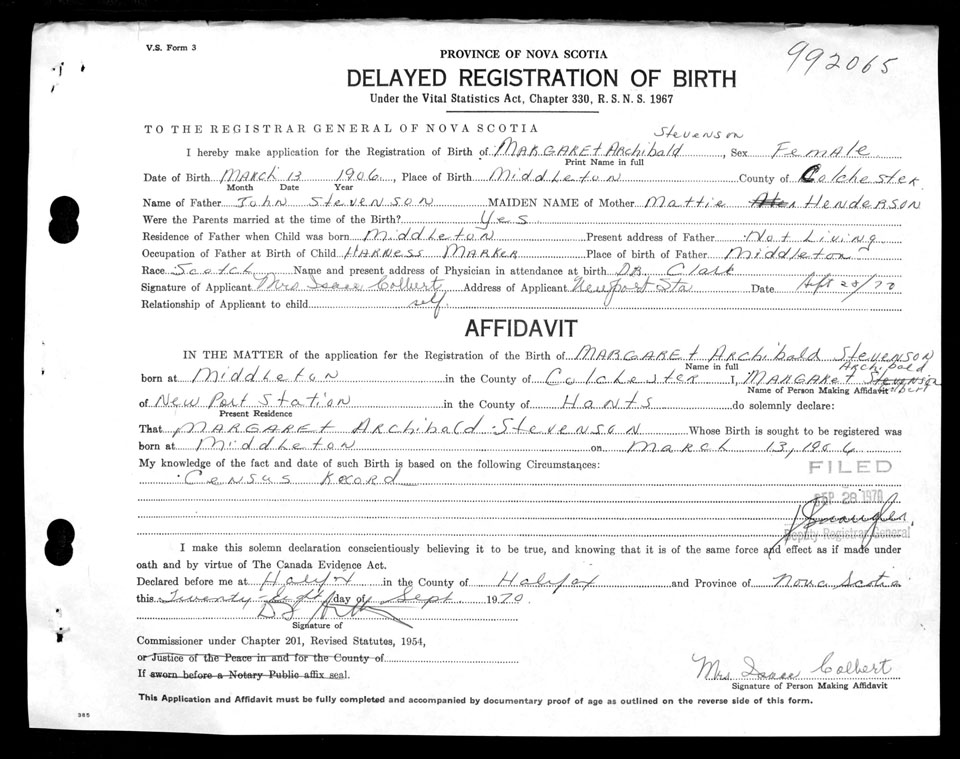 V.S. Form 3
PROVINCE OF NOVA SCOTIA
992065
DELAYED REGISTRATION OF BIRTH
Under the Vital Statistics Act, Chapter 330, R.S.N.S. 1967
TO THE REGISTRAR GENERAL OF NOVA SCOTIA
Stevenson
I hereby make application for the Registration of Birth of MARGARET Archibald, Sex Female
Print Name in full
Date of Birth MARCH 13 1906, Place of Birth Middleton County of Colchester
Month Date Year
Name of Father John Stevenson MAIDEN NAME of Mother Mattie Henderson
Were the Parents married at the time of the Birth? Yes
Residence of Father when Child was born Middleton Present address of Father Not Living
Occupation of Father at Birth of Child HARNESS MARKER Place of birth of Father Middleton
Race Scotch Name and present address of Physician in attendance at birth DR. Clark
Signature of Applicant Mrs Isaac Colbert Address of Applicant Newport Sta Date Sept 28/70
Relationship of Applicant to child self.
AFFIDAVIT
IN THE MATTER of the application for the Registration of the Birth of MARGARET Archibald Stevenson
Name in full Archibald
born at Middleton in the County of Colchester I, MARGARET Stevenson
Name of Person Making Affidavit
of New Port Station in the County of Hants do solemnly declare:
Present Residence
That MARGARET Archibald Stevenson Whose Birth is sought to be registered was
born at Middleton on March 13, 1906
My knowledge of the fact and date of such Birth is based on the following Circumstances:
FILED
Census Record
SEP 28 1970
Deputy Registrar General
I make this solemn declaration conscientiously believing it to be true, and knowing that it is of the same force and effect as if made under
oath and by virtue of The Canada Evidence Act.
Declared before me at Halifax in the County of Halifax and Province of Nova Scotia
this Twenty Eight day of Sept. 1970.
Signature of
Commissioner under Chapter 201, Revised Statutes, 1954,
or Justice of the Peace in and for the County of
If sworn before a Notary Public affix seal.
Mrs Isaac Colbert
Signature of Person Making Affidavit
This Application and Affidavit must be fully completed and accompanied by documentary proof of age as outlined on the reverse side of this form.
385